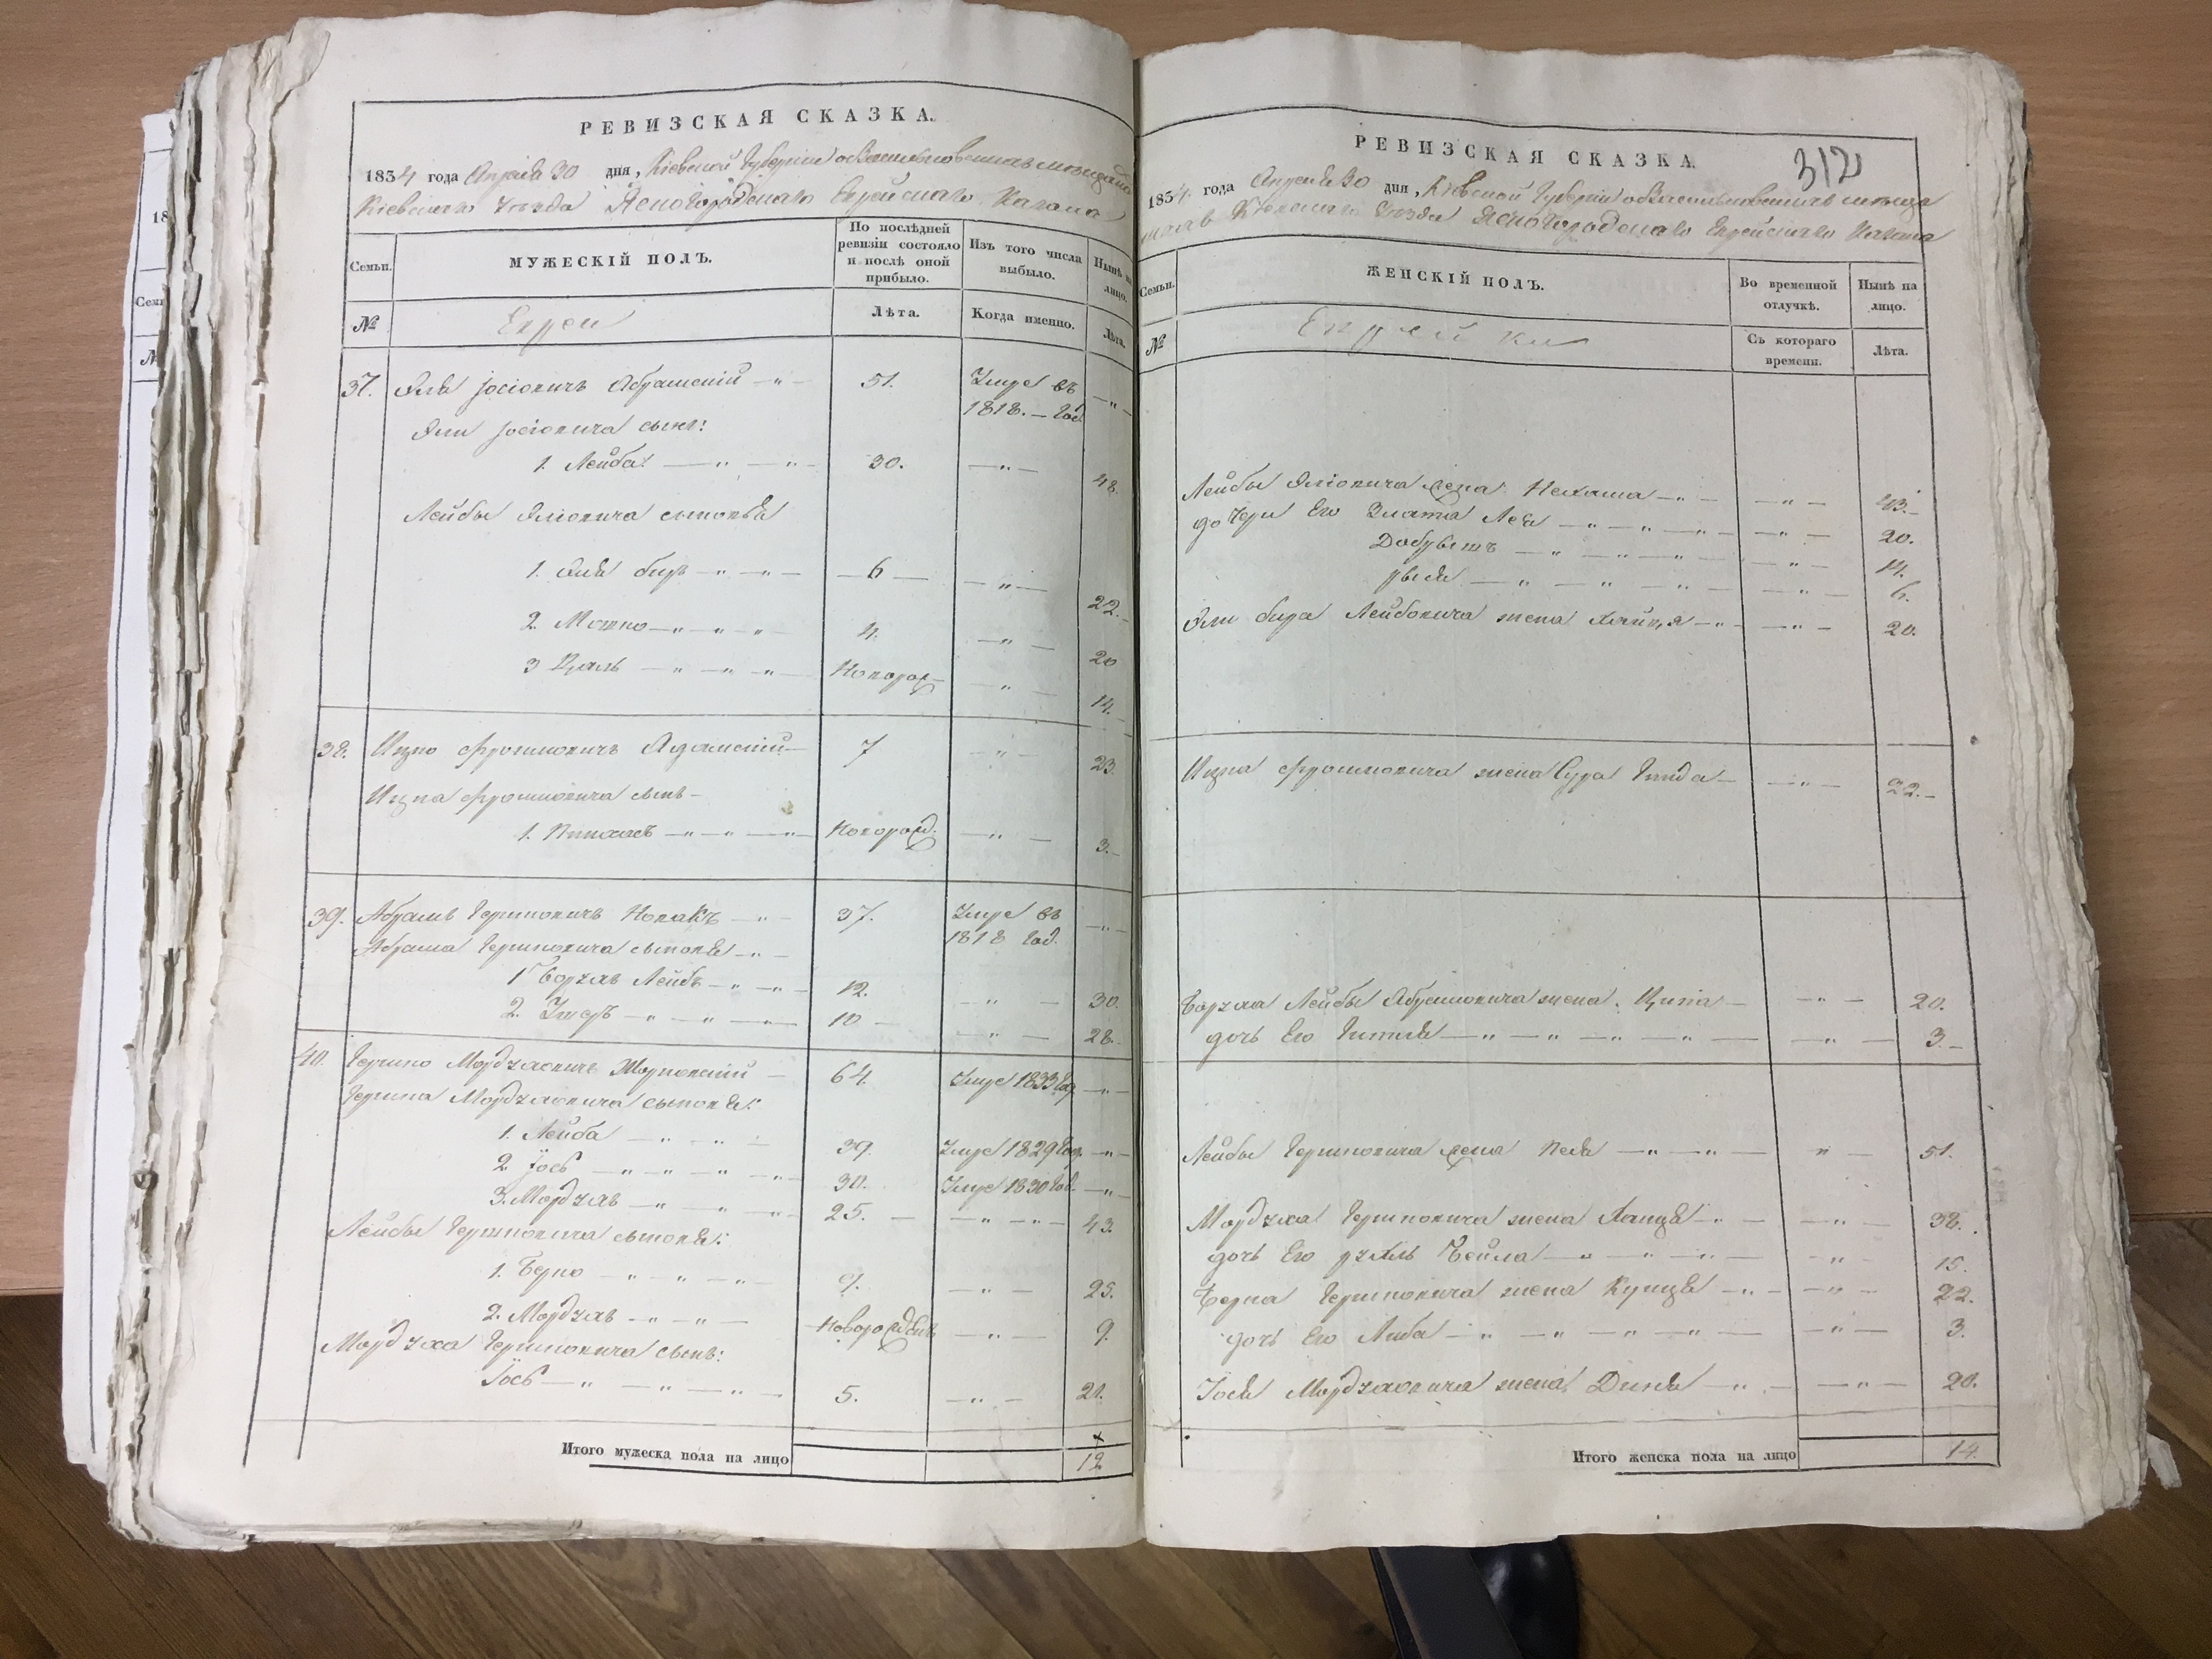 РЕВИЗСКАЯ СКАЗКА.
1834 года Апреля 30 дня, Кіевской Губерніи о
Кіевскаго Уезда Ясногородскаго Еврейскаго Кагала
Семьи.
МУЖЕСКІЙ ПОЛЪ.
По послѣдней ревизіи состояло и послѣ оной прибыло.
Изъ того числа выбыло.
Нынѣ на лицо.
№
Евреи
Лѣта.
Когда именно.
Лѣта.
37. Эля Іосіовичъ 51. Умре въ
1818. Год
Эли Іосіовича сынъ:
1. Лейба 30. 48.
Лейбы Эліовича сыновья
1. Эля беръ 6 22.
2. Мошко 4. 20
3 Новорож 14.
38. Ицко Фроимовичъ Адамскій 7 23.
Ицка Фроимовича сынъ
1. Пинхасъ Новорожд. 3.
39. Абрамъ Гершковичъ Новакъ 37. Умре въ
1818 Год.
Абрама Гершковича сыновья
1 Борхъ Лейбъ 12. 30.
2. 10 28.
40. Гершко Мордхаовичъ 64. Умре 1833 Год
Гершка Мордхаовича сыновья:
1. Лейба 39. Умре 1829 Год.
2 Іось 30. Умре 1830 Год.
3. Мордхай 25. 43.
Лейбы Гершковича сыновья:
1. Берко 9. 25.
2. Мордхай Новорожден 9.
Мордха Гершковича сынъ:
Іось 5. 21.
Итого мужеска пола на лицо 12
РЕВИЗСКАЯ СКАЗКА.
312
1834 года Апреля 30 дня, Кіевской Губерніи о
Кіевскаго Уезда Ясногородскаго Еврейскаго Кагала
Семьи.
ЖЕНСКІЙ ПОЛЪ.
Во временной отлучкѣ.
Нынѣ на лицо.
№
Еврейки
Съ котораго времени.
Лѣта.
Лейбы Эліовича жена Нехама 43.
дочери Его Злата Лея 20.
14.
6.
Эли бера Лейбовича жена 20.
Ицка Фроимовича жена Сура Гинда 22.
Борха Лейбы Абрамовича жена 20.
дочь Его Гитля 3.
Лейбы Гершковича жена Песя 51.
Мордха Гершковича жена Ханця 38.
дочь Его Рухль Бейла 15.
Берка жена 22.
дочь Его Либа 3.
Іося Мордхаовича жена Динья 20.
Итого женска пола на лицо 14